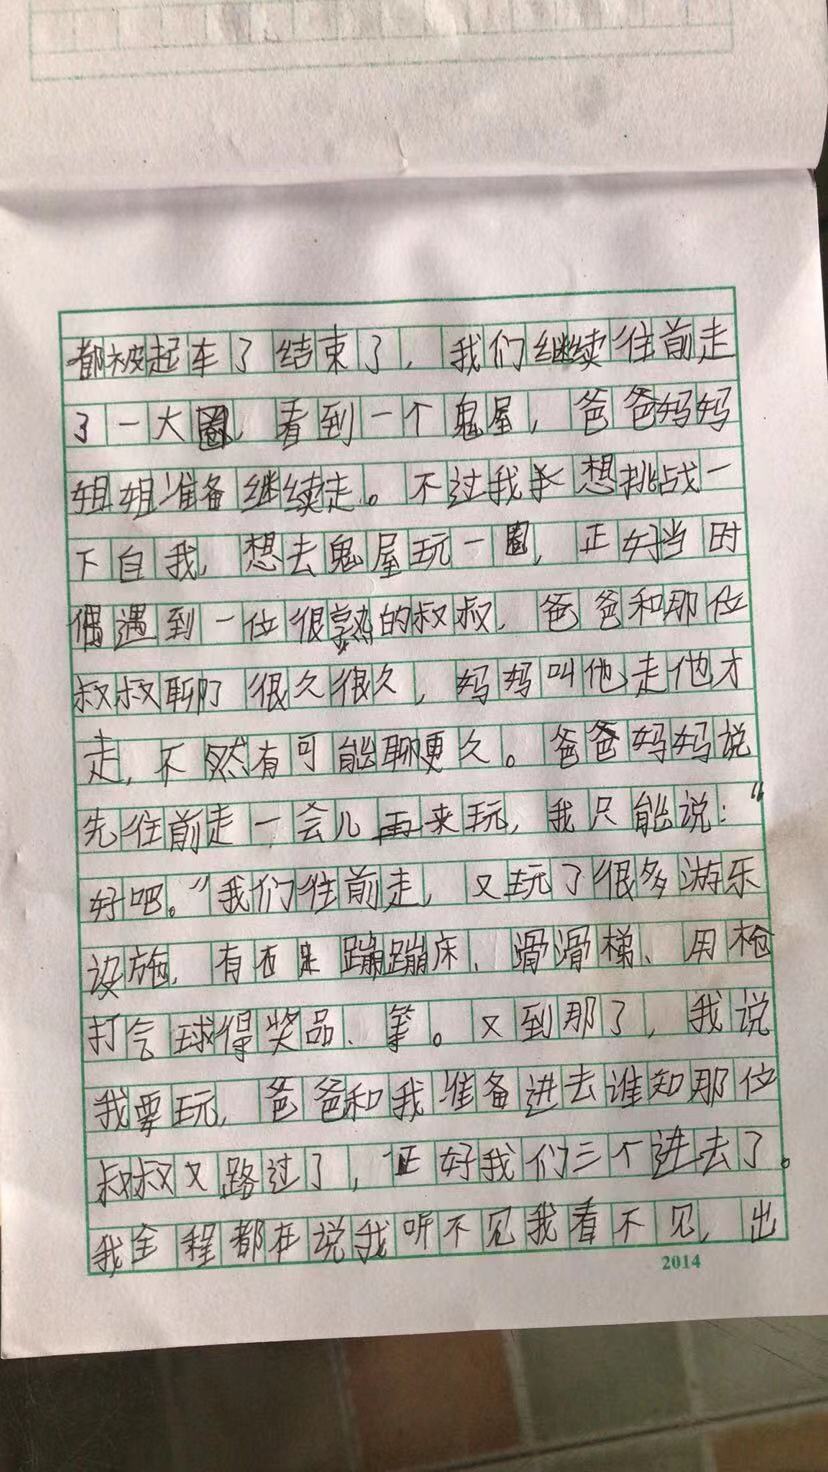 都被起车了结束了，我们继续往前走
了一大圈，看到一个鬼屋，爸爸妈妈
姐姐准备继续走。不过我想挑战一
下自我，想去鬼屋玩一圈，正好当时
偶遇到一位很熟的叔叔，爸爸和那位
叔叔聊了很久很久，妈妈叫他走他才
走，不然有可能聊更久。爸爸妈妈说
先往前走一会儿再来玩，我只能说：“
好吧。”我们往前走，又玩了很多游乐
设施，有蹦蹦床、滑滑梯、用枪
打气球得奖品、等。又到那了，我说
我要玩，爸爸和我准备进去谁知那位
叔叔又路过了，正好我们三个进去了。
我全程都在说我听不见我看不见，出
2014